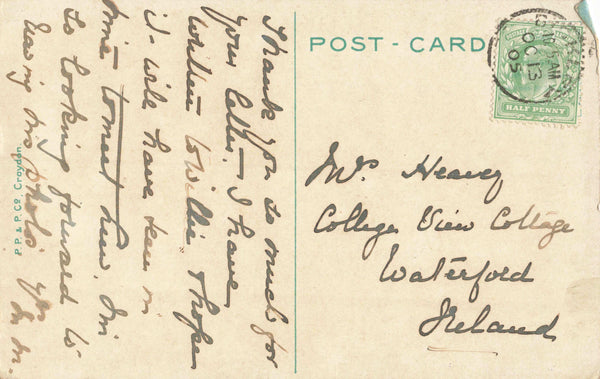 Thank you so much for
your letter - I have
written to Willie I hope
I will have seen in
time to meet him. I'm
so looking forward to
having his photo.
POST - CARD
OC 13
05
HALF PENNY
Mrs Heavey
College View Cottage
Waterford
Ireland
P. P. & P. Co., Croydon.